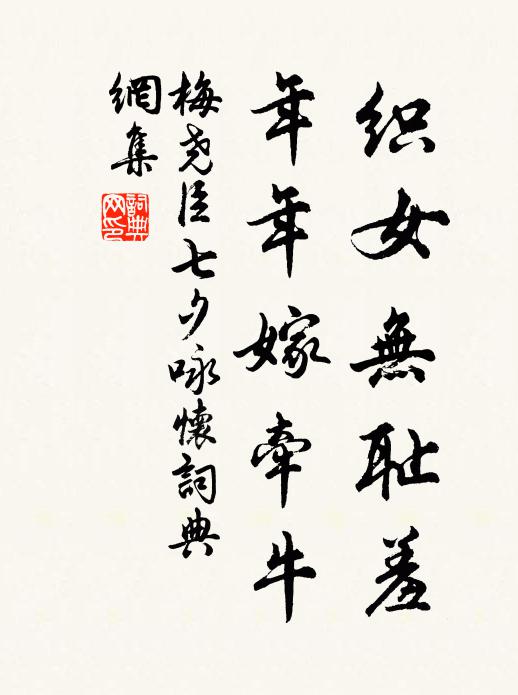 织女無耻羞
年年嫁牽牛
梅尧臣七夕咏懷詞典
網集
詞典网印